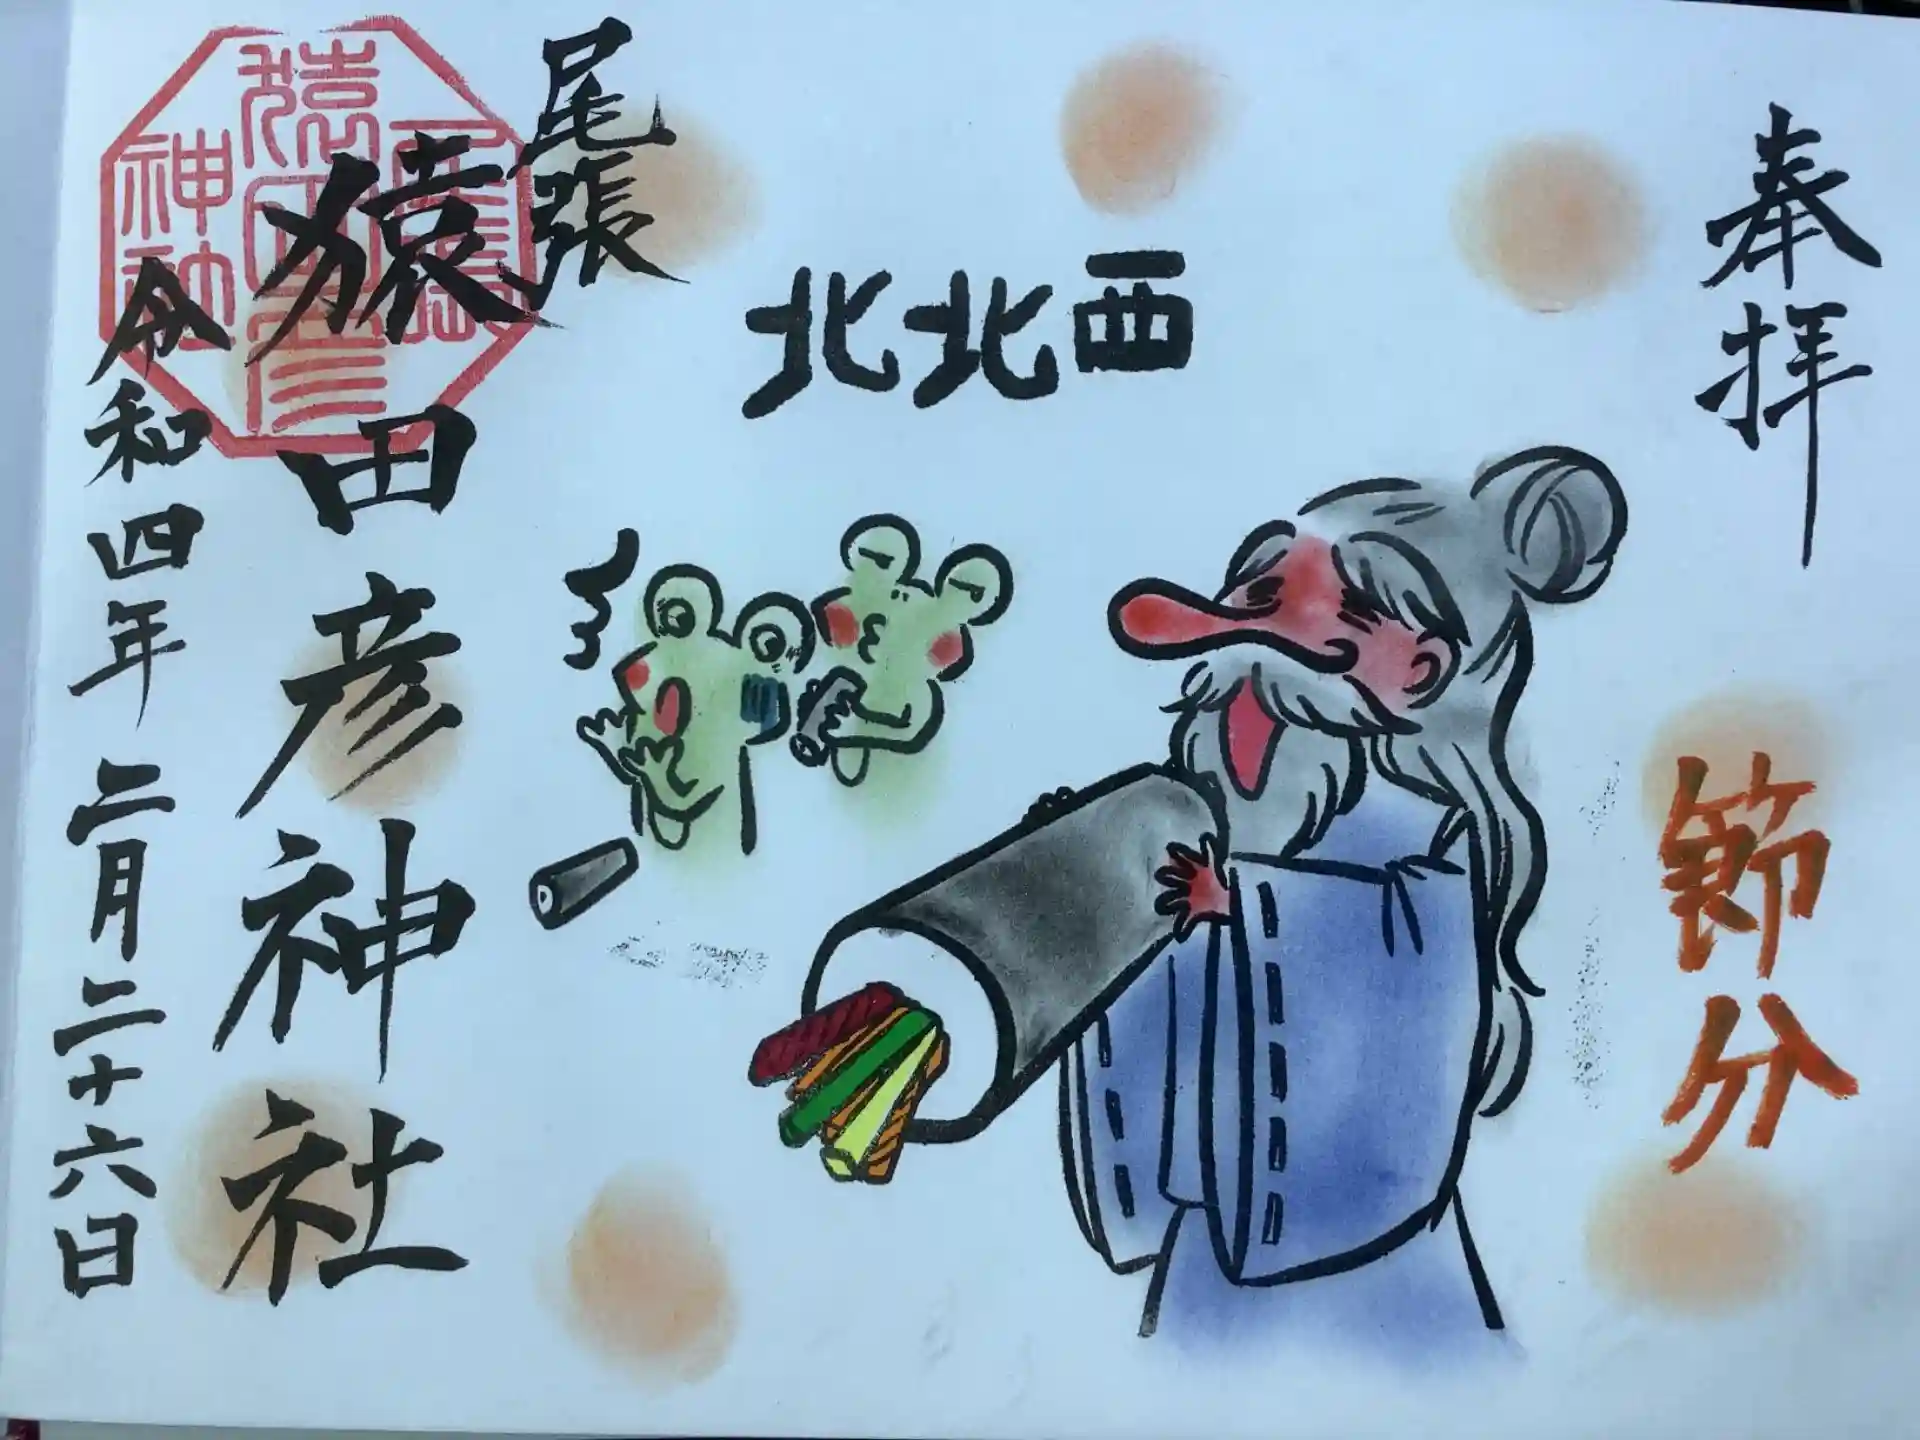 奉拝
節分
北北西
尾張
猿田彦神社
令和四年二月二十六日
猿田彦
神社